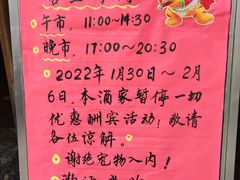 午市：11:00～14:30
晚市：17:00～20:30
2022年1月30日～2月
6日，本酒家暂停一切
优惠酬宾活动，敬请
各位谅解。
谢绝宠物入内！